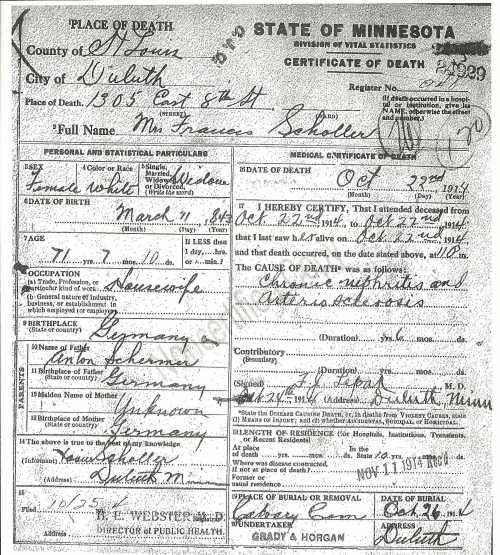 PLACE OF DEATH
County of St Louis
City of Duluth
Place of Death. 1305 East 8th St
(STREET) (WARD)
Full Name Mrs Francis Scholler
STATE OF MINNESOTA
DIVISION OF VITAL STATISTICS
CERTIFICATE OF DEATH
Register No.
(If death occurred in a hospital or institution, give its NAME, otherwise the street and number.)
PERSONAL AND STATISTICAL PARTICULARS
3 SEX
Female
4 Color or Race
White
5 Single, Married, Widowed or Divorced.
(Write the word)
Widow
6 DATE OF BIRTH
March 11 1843
(Month) (Day) (Year)
7 AGE
71 yrs. 7 mos. 10 ds.
If LESS than 1 day, hrs. or min.?
8 OCCUPATION
(a) Trade, Profession, or particular kind of work
Housewife
(b) General nature of industry, business, or establishment in which employed (or employer)
9 BIRTHPLACE
(State or country)
Germany
PARENTS
10 Name of Father
Anton Schermer
11 Birthplace of Father
(State or country)
Germany
12 Maiden Name of Mother
Unknown
13 Birthplace of Mother
(State or country)
Germany
14 The above is true to the best of my knowledge
(Informant) Scholler
(Address) Duluth Minn
15
Filed 10/25 4
H. E. WEBSTER M D
DIRECTOR OF PUBLIC HEALTH.
Address
MEDICAL CERTIFICATE OF DEATH
16 DATE OF DEATH
Oct 22nd 1914
(Month) (Day) (Year)
17 I HEREBY CERTIFY, That I attended deceased from
Oct 22nd 1914, to Oct 22nd 1914
that I last saw her alive on Oct 22nd 1914
and that death occurred, on the date stated above, at m.
The CAUSE OF DEATH was as follows:
Chronic nephritis and
arterio sclerosis
(Duration) yrs. 6 mos. ds.
Contributory
(Secondary)
(Duration) yrs. mos. ds.
(Signed) M. D.
Oct 24th 1914 (Address) Duluth, Minn
State the DISEASE CAUSING DEATH, or, in deaths from VIOLENT CAUSES, state (1) MEANS OF INJURY; and (2) whether ACCIDENTAL, SUICIDAL, or HOMICIDAL.
18 LENGTH OF RESIDENCE (for Hospitals, Institutions, Transients, or Recent Residents)
At place of death yrs. mos. ds. State 10 yrs. mos. ds.
Where was disease contracted, if not at place of death?
Former or usual residence
NOV 11 1914 Rec'd
19 PLACE OF BURIAL OR REMOVAL
Calvary Cem
DATE OF BURIAL
Oct. 26 1914
20 UNDERTAKER
GRADY & HORGAN
ADDRESS
Duluth